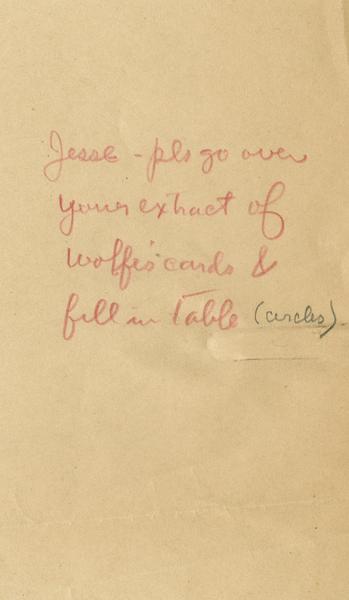 Jesse - pls go over
your extract of
Wolfe's cards &
fill in Table (circles)